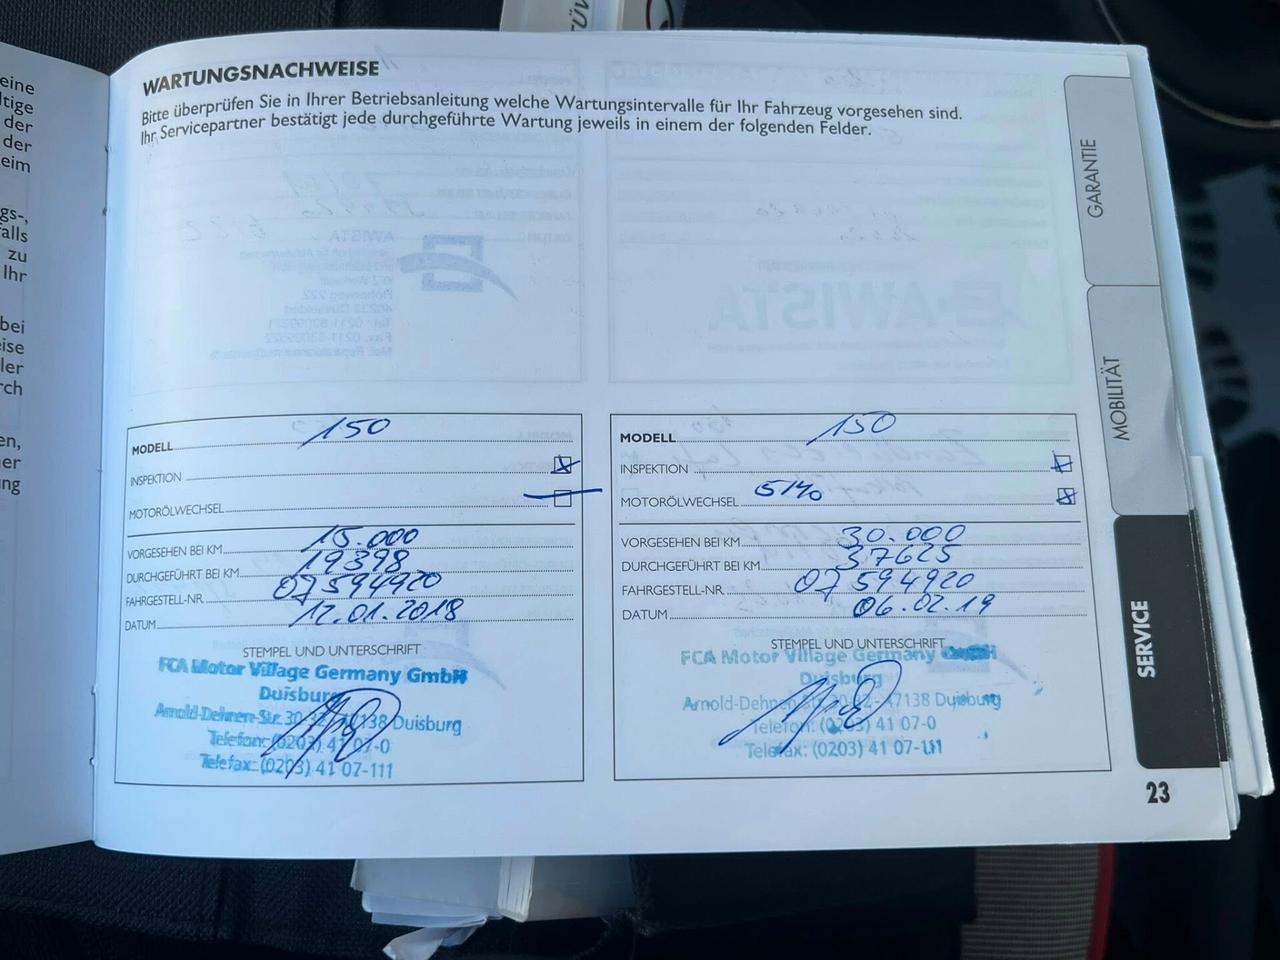 TÜV
eine
ltige
der
der
eim
gs-,
falls
zu
Ihr
bei
eise
ller
rch
en,
er
ng
WARTUNGSNACHWEISE
Bitte überprüfen Sie in Ihrer Betriebsanleitung welche Wartungsintervalle für Ihr Fahrzeug vorgesehen sind.
Ihr Servicepartner bestätigt jede durchgeführte Wartung jeweils in einem der folgenden Felder.
MODELL 150
INSPEKTION
MOTORÖLWECHSEL
VORGESEHEN BEI KM 15.000
DURCHGEFÜHRT BEI KM 19398
FAHRGESTELL-NR. 07594920
DATUM 12.01.2018
STEMPEL UND UNTERSCHRIFT
FCA Motor Village Germany GmbH
Duisburg
Arnold-Dehnen-Str. 30-32 - 47138 Duisburg
Telefon: (0203) 41 07-0
Telefax: (0203) 41 07-111
MODELL 150
INSPEKTION
MOTORÖLWECHSEL
VORGESEHEN BEI KM 30.000
DURCHGEFÜHRT BEI KM 37625
FAHRGESTELL-NR. 07594920
DATUM 06.02.19
STEMPEL UND UNTERSCHRIFT
FCA Motor Village Germany GmbH
Duisburg
Arnold-Dehnen-Str. 30-32 - 47138 Duisburg
Telefon: (0203) 41 07-0
Telefax: (0203) 41 07-111
GARANTIE
MOBILITÄT
SERVICE
23